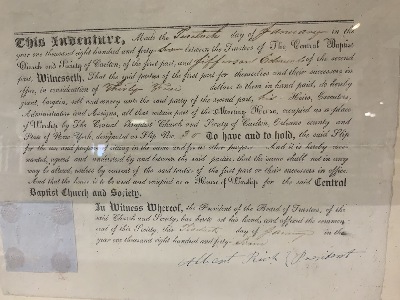 This Indenture, Made the Twentieth day of January in the
year one thousand eight hundred and forty- between the Trustees of The Central Baptist
Church and Society of of the first part, and Jefferson of the second
part, Witnesseth, That the said parties of the first part for themselves and their successors in
office, in consideration of Thirty dollars to them in hand paid, do hereby
grant, bargain, sell and convey unto the said party of the second part, his Heirs, Executors,
Administrators and Assigns, all that certain part of the House, occupied as a place
of Worship by The Central Baptist Church and Society of county and
State of New York, designated as Slip No. To have and to hold, the said Slip
for the use and purpose of sitting in the same and for no other purpose. And it is hereby
agreed and understood by and between the said parties, that the same shall not in any
way be altered, unless by consent of the said parties of the first part or their successors in office.
And that the house is to be used and occupied as a House of Worship for the said Central
Baptist Church and Society.
In Witness Whereof, the President of the Board of Trustees, of the
said Church and Society, has hereto set his hand, and affixed the common
seal of this Society, this Twentieth day of January in the
year one thousand eight hundred and forty-
Albert President